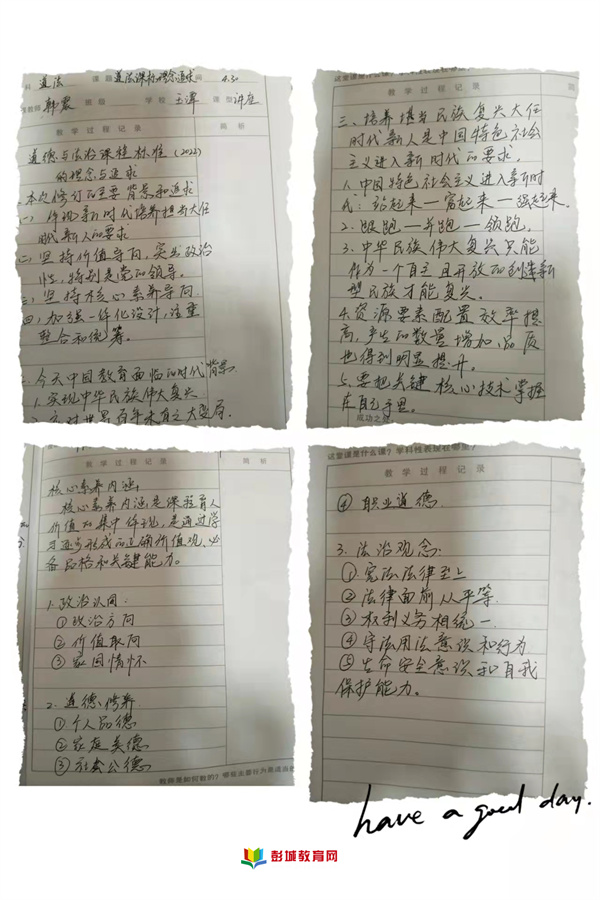 科 道法 课题 道法课标理念追求 时间 4.30
教师 韩震 班级 学校 王潭 课型 讲座
教学过程记录 简析
道德与法治课程标准(2022)
的理念与追求
本次修订的主要背景和追求
一) 体现新时代培养担当大任
时代新人的要求
(二) 坚持价值导向,突出政治
性,特别是党的领导。
三) 坚持核心素养导向
四,加强一体化设计,注重
整合和统筹。
二、今天中国教育面临的时代背景
1.实现中华民族伟大复兴
2.应对世界百年未有之大变局.
教学过程记录 简
三、培养担当民族复兴大任
时代新人是中国特色社会
主义进入新时代的要求.
1.中国特色社会主义进入新时
代:站起来一富起来一强起来.
2.跟跑一并跑一领跑.
3.中华民族伟大复兴只能
作为一个自主且开放的创造新
型民族才能复兴。
4.资源要素配置效率提
高,产生的数量增加品质
也得到明显提升。
5.要把关键核心技术掌握
在自己手里.
成功之处
教学过程记录 简析
核心素养内涵:
核心素养内涵是课程育人
价值的集中体现,是通过学
习逐步形成的正确价值观、必
备品格和关键能力。
1.政治认同:
①政治方向
②价值取向
③家国情怀
2.道德修养
①个人品德
②家庭美德
③社会公德
这堂课是什么课?学科性表现在哪里?
教学过程记录
④职业道德
3.法治观念:
①.宪法法律至上
②法律面前人人平等.
③.权利义务相统一.
④守法用法意识和行为
⑤生命安全意识和自我
保护能力。
have a good day.
彭城教育网